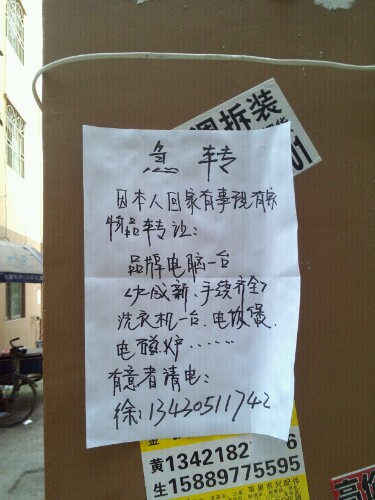 调拆装
01
急 转
因本人回家有事现有家
物品转让:
品牌电脑一台
<九成新、手续齐全>
洗衣机一台、电饭煲
电磁炉……
有意者请电:
徐:13430511742
黄1342182 6
生15889775595
高价